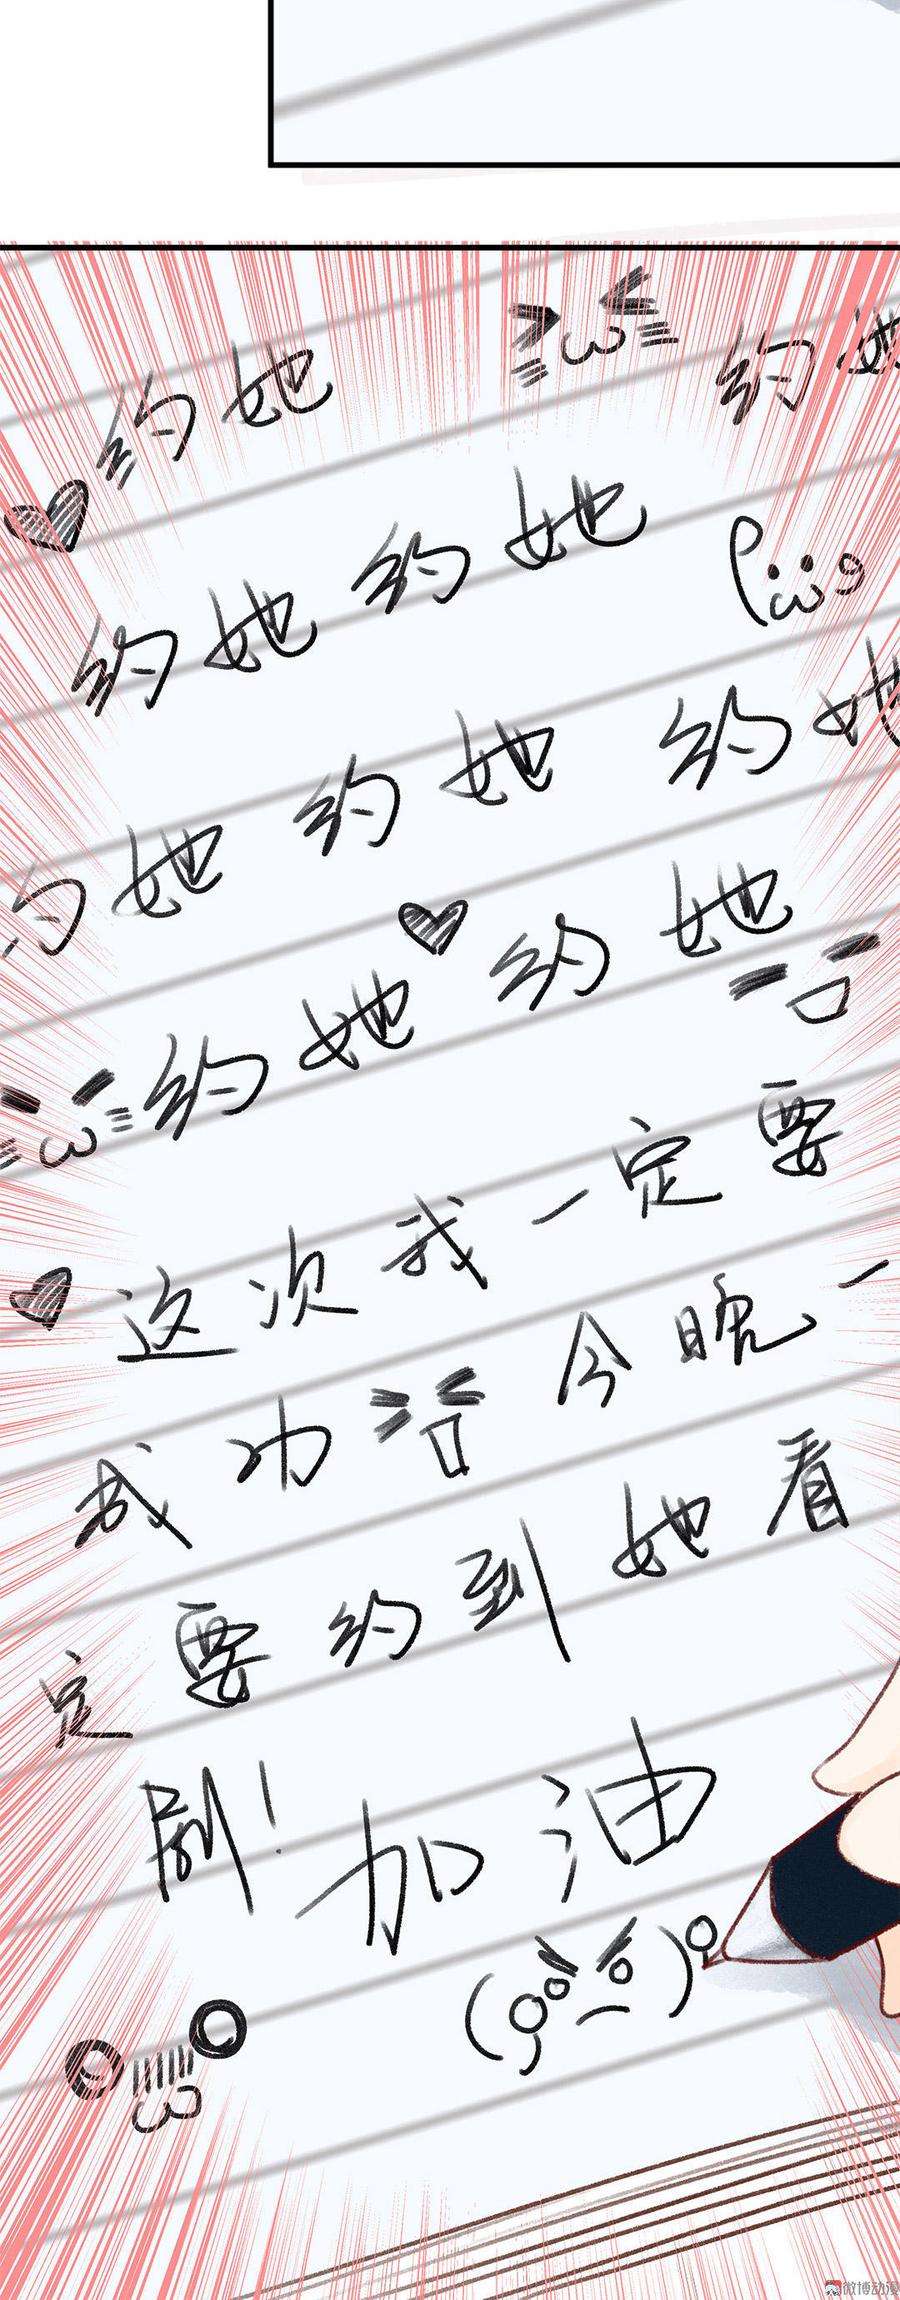 约她 约她
约她约她
约她约她 约她
约她约她
这次我一定要
成功 今晚一
定要约到她看
剧！加油
微博动漫